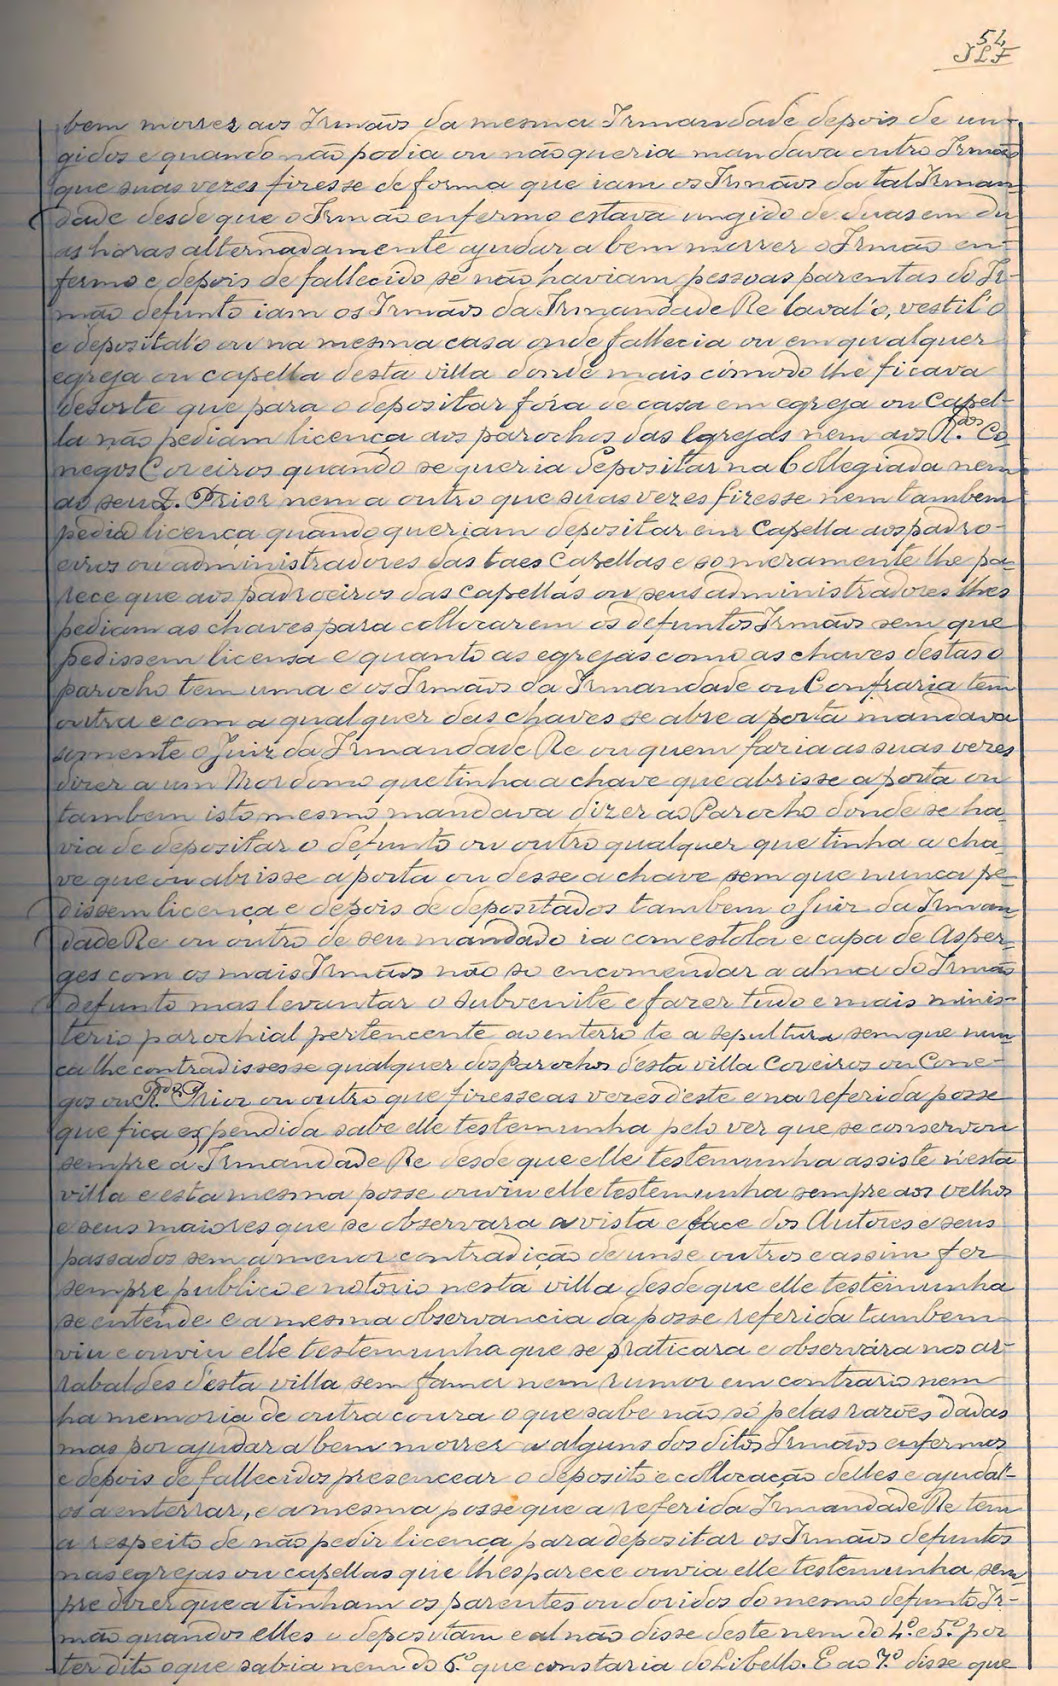 54
JLF
bem morrer aos Irmãos da mesma Irmandade depois de un-
gidos e quando não podia ou não queria mandava outro Irmão
que suas vezes fizesse de forma que iam os Irmãos da tal Irman-
dade desde que o Irmão enfermo estava ungido de duas em du-
as horas alternadamente ajudar a bem morrer o Irmão en-
fermo e depois de fallecido se não haviam pessoas parentas do Ir-
mão defunto iam os Irmãos da Irmandade Re laval'o, vestil'o
e deposital'o ou na mesma casa onde fallecia ou em qualquer
egreja ou capella desta villa donde mais cómodo lhe ficava
desorte que para o depositar fóra de casa em egreja ou Capel-
la não pediam licença aos parochos das Egrejas nem aos R.dos Co-
negos Coreiros quando se queria Depositar na Collegiada nem
ao seu D. Prior nem a outro que suas vezes fizesse nem tambem
pedia licença quando queriam depositar em Capella aos padro-
eiros ou administradores das taes Capellas e someramente lhe pa-
rece que aos padroeiros das capellas ou seus administradores lhes
pediam as chaves para collocarem os defuntos Irmãos sem que
pedissem licensa e quanto as egrejas como as chaves destas o
parocho tem uma e os Irmãos da Irmandade ou Confraria tem
outra e com a qualquer das chaves se abre a porta mandava
somente o Juiz da Irmandade Re ou quem fazia as suas vezes
dizer a um Mordomo que tinha a chave que abrisse a porta ou
tambem isto mesmo mandava dizer ao Parocho donde se ha-
via de depositar o defunto ou outro qualquer que tinha a cha-
ve que ou abrisse a porta ou desse a chave sem que nunca pe-
dissem licença e depois de depositados tambem o Juiz da Irman-
dade Re ou outro de seu mandado ia com estola e capa de Asper-
ges com os mais Irmãos não so encomendar a alma do Irmão
defunto mas levantar o Subvenite e fazer tudo e mais minis-
terio parochial pertencente ao enterro te a sepultura sem que nun-
ca lhe contradissesse qualquer dos Parochos desta villa Coreiros ou Cone-
gos ou R.dos Prior ou outro que fizesse as vezes d'este e na referida posse
que fica expendida sabe elle testemunha pelo ver que se conservou
sempre a Irmandade Re desde que elle testemunha assiste n'esta
villa e esta mesma posse ouviu elle testemunha sempre aos velhos
e seus maiores que se observara a vista e face dos Autores e seus
passados sem a menor contradição de uns e outros e assim fez
sempre publico e notorio nesta villa desde que elle testemunha
se entende e a mesma observancia da posse referida tambem
viu e ouviu elle testemunha que se praticara e observára nos ar-
rabaldes d'esta villa sem fama nem rumor em contrario nem
ha memoria de outra couza o que sabe não só pelas razões dadas
mas por ajudar a bem morrer a alguns dos ditos Irmãos enfermos
e depois de fallecidos presencear o deposito e collocação delles e ajudal-
os a enterrar, e a mesma posse que a referida Irmandade Re tem
a respeito de não pedir licença para depositar os Irmãos defuntos
nas egrejas ou capellas que lhes parece ouvia elle testemunha sem-
pre dizer que a tinham os parentes ou doridos do mesmo defunto Ir-
mão quandos elles o depositam e al não disse deste nem do 4.º e 5.º por
ter dito o que sabia nem do 6.º que constaria do Libello. E ao 7.º disse que